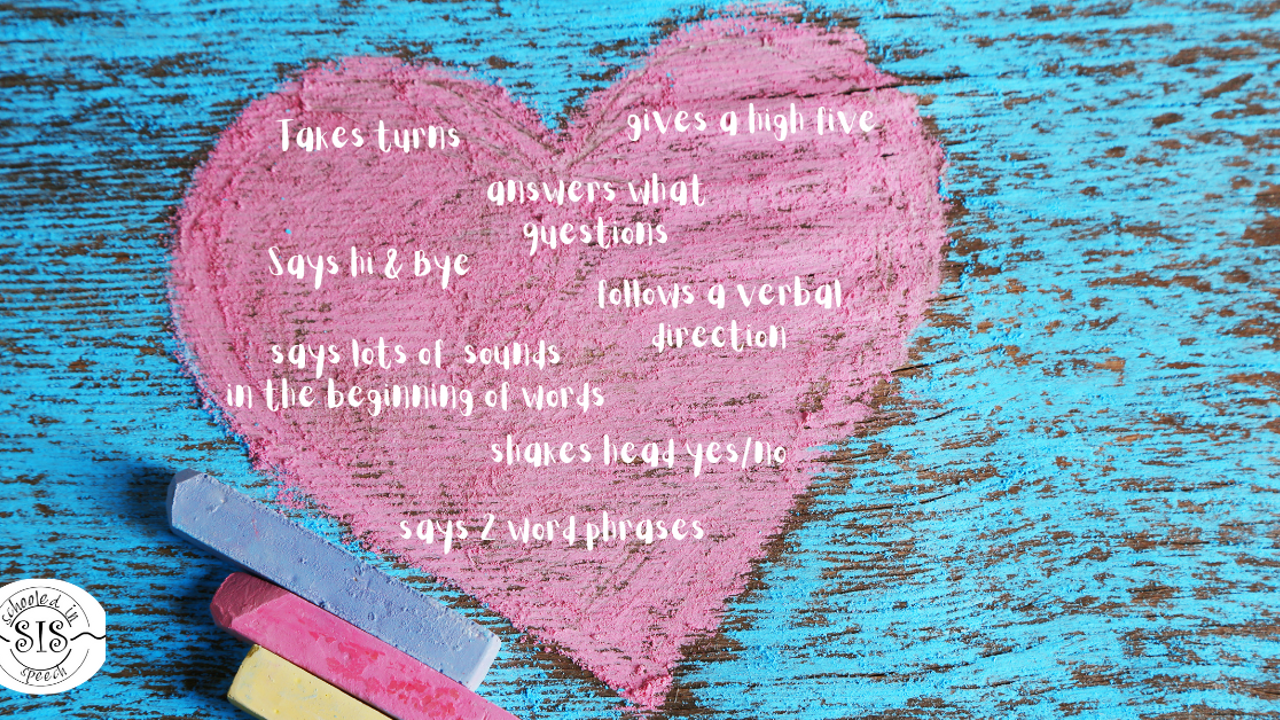 Takes turns
gives a high five
answers what
questions
Says hi & Bye
follows a verbal
direction
says lots of sounds
in the beginning of words
shakes head yes/no
says 2 word phrases
schooled in
SIS
speech